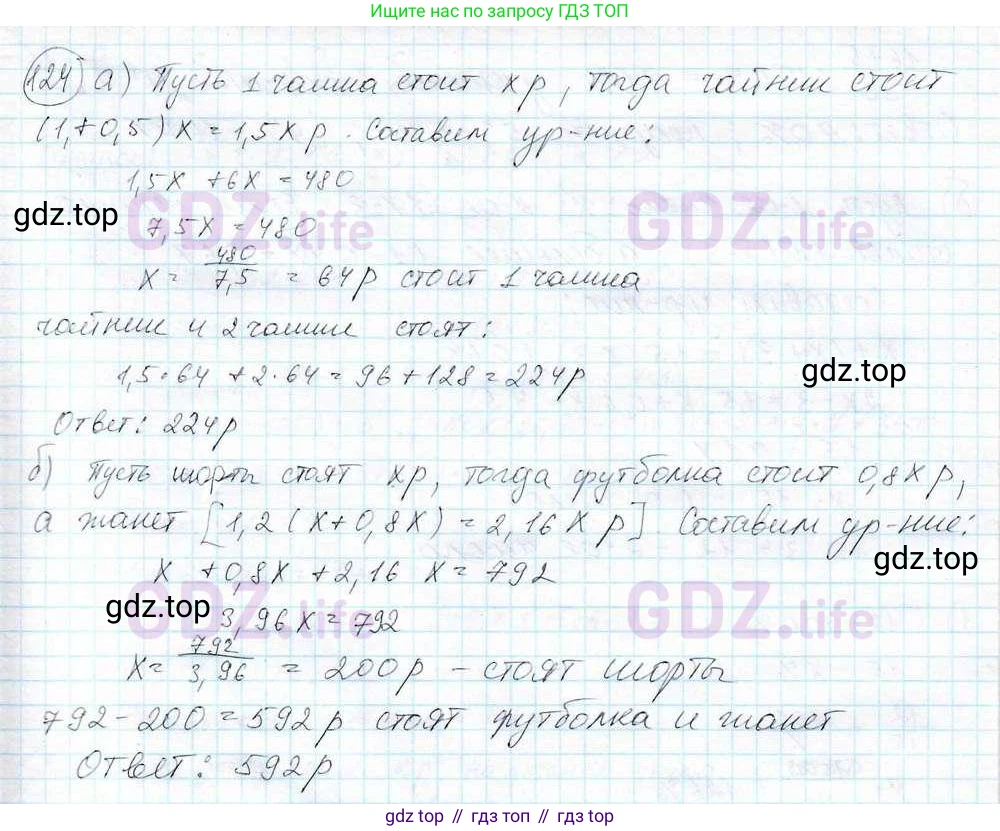 Ищите нас по запросу ГДЗ ТОП
124 а) Пусть 1 чашка стоит x р, тогда чайник стоит
(1,+0,5)x = 1,5x р. Составим ур-ние:
1,5x + 6x = 480
GDZ.life GDZ.life
gdz.top
7,5x = 480
x = 480/7,5 = 64р стоит 1 чашка
чайник и 2 чашки стоят:
1,5·64 + 2·64 = 96 + 128 = 224р
gdz.top
Ответ: 224р
б) Пусть шорты стоят xр, тогда футболка стоит 0,8x р,
а жакет [1,2(x+0,8x) = 2,16x р] Составим ур-ние:
gdz.top
x + 0,8x + 2,16 x = 792
GDZ.life GDZ.life
gdz.top
3,96x = 792
x = 792/3,96 = 200р – стоят шорты
792 – 200 = 592р стоят футболка и жакет
Ответ: 592р
gdz.top // gdz.top // gdz.top // gdz.top